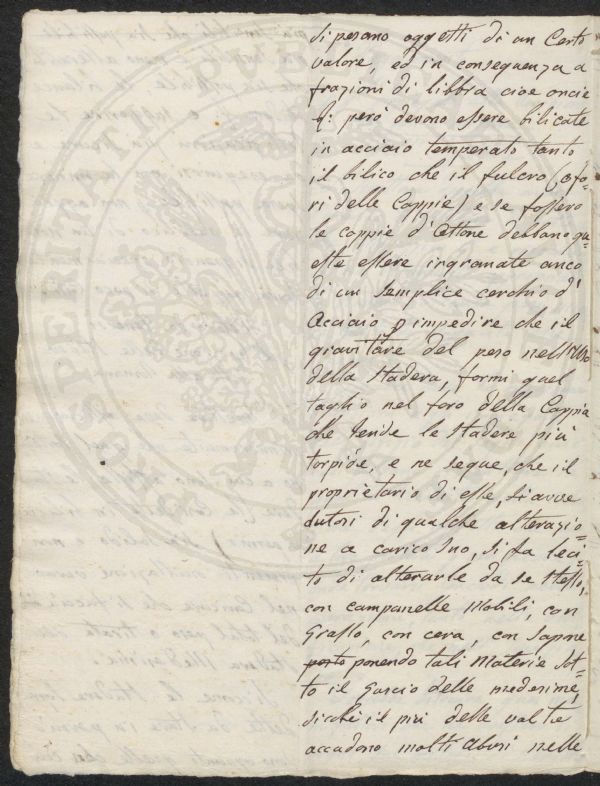 si pesano oggetti di un Certo
valore, ed in conseguenza a
frazioni di libbra cioe oncie
&: però devono essere bilicate
in acciaio temperato tanto
il bilico che il fulcro (o fo=
ri delle Coppie) e se fossero
le coppie d'Ottone debbano que=
ste essere ingranate anco
di un semplice cerchio d'
Acciaio p impedire che il
gravitare del peso nell'Uso
della stadera, formi quel
taglio nel foro della Coppia
che rende le stadere più
torpide, e ne segue, che il
proprietario di esse, si avve
dutosi di qualche alterazio=
ne a carico Suo, si fa leci=
to di alterarle da se stesso,
con campanelle Mobili, con
Grasso, con cera, con Sapone
porto ponendo tali Materie Sot=
to il Guscio delle medesime,
sicchè il più delle volte
accadono molti Abusi nelle